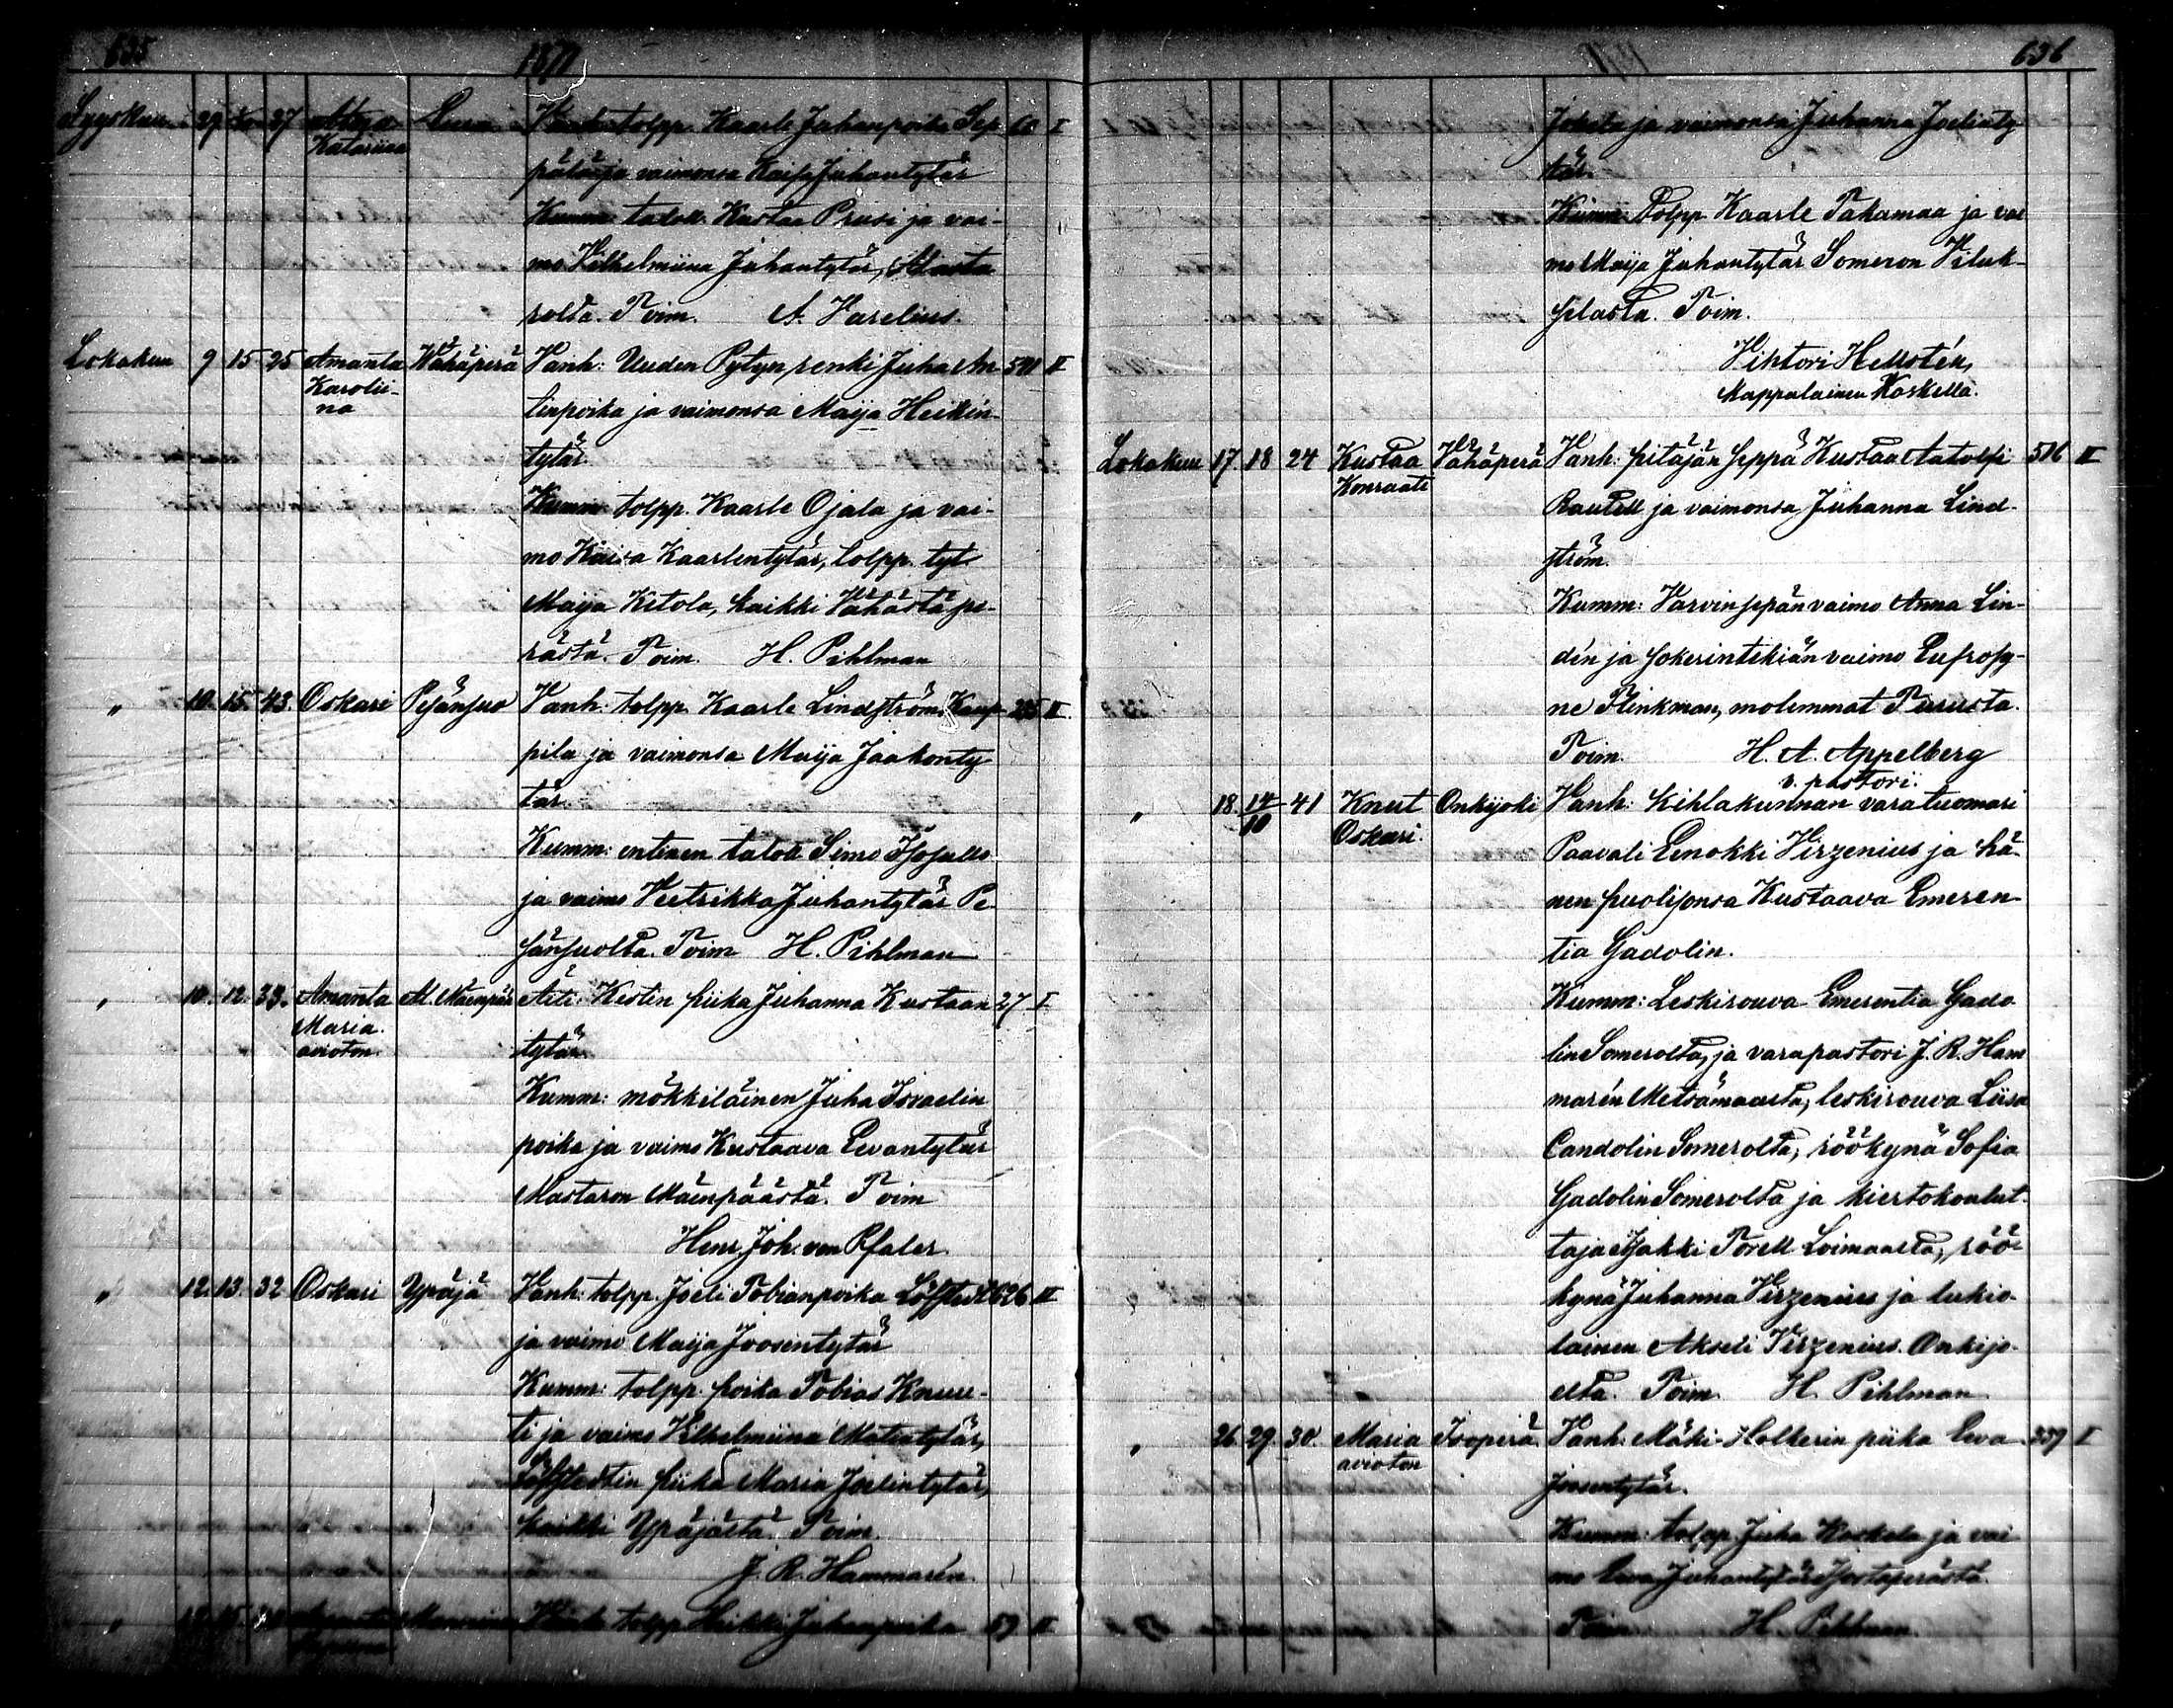 635
1877
Syyskuu 29 27 Katariina Vanh: tolpp. Kaarle Juhanpoika Sep- 60 I
pälä ja vaimonsa Kaisa Juhantytär
Kumm: Kustaa Prusi ja vai-
mo Vilhelmiina Juhantytär, Alasta-
rolta. Toim. A. Varelius.
Lokakuu 9 15 25 Amanta Wähäperä Vanh: Uuden Pytyn renki Juha An- 591 II
Karolii- tinpoika ja vaimonsa Maija Heikin-
na
tytär
Kumm: tolpp. Kaarle Ojala ja vai-
mo Kaisa Kaarlentytär, tolpp. tyt.
Maija Ketola, kaikki Vähästäpe-
rästä. Toim. H. Pihlman
" 10. 15. 43. Oskari Pesänsuo Vanh: tolpp. Kaarle Lindström Kaup- 235 II
pila ja vaimonsa Maija Jaakonty-
tär
Kumm: entinen Simo Isosallo
ja vaimo Veetrikka Juhantytär Pe-
sänsuolta. Toim H. Pihlman
" 10. 12. 33. Amanta Al. Mäenpää Äiti: Kestin piika Juhanna Kustaan- 27 I
Maria.
avioton. tytär.
Kumm: mökkiläinen Juha Israelin
poika ja vaimo Kustaava Eevantytär
Mastaron Mäenpäästä. Toim
Henr. Joh. von Pfaler.
" 12. 13. 32 Oskari Ypäjä Vanh: tolpp. Joeli Tobianpoika Löfstedt 626 II
ja vaimo Maija Joosentytär
Kumm: tolpp. poika Tobias Knuu-
ti ja vaimo Vilhelmiina Matintytär,
Löfstedtin piika Maria Joelintytär,
kaikki Ypäjästä. Toim
J. R. Hammarén.
" 15. Vanh: tolpp. Heikki Juhanpoika 59 II
636
Jokela ja vaimonsa Juhanna Joelinty-
tär.
Kumm: Tolpp. Kaarle Takamaa ja vai
mo Maija Juhantytär Someron Viluk-
selasta. Toim.
Vihtori Hellstén,
kappalainen Koskella.
Lokakuu 17 18 24 Kustaa Vähäperä Vanh: pitäjän seppä Kustaa Aatolfi 516 II
Konraati Rautell ja vaimonsa Juhanna Lind-
ström.
Kumm: Varvinsepän vaimo Anna Lin-
dén ja sokerintekiän vaimo Eufrosy-
ne Flinkman, molemmat Turusta.
Toim. H. A. Appelberg
v. pastori.
" 18. 14/10 41 Knut Onkijoki Vanh: kihlakunnan varatuomari
Oskari. Paavali Eenokki Virzenius ja hä-
nen puolisonsa Kustaava Emeren-
tia Gadolin.
Kumm: Leskirouva Emerentia Gado-
lin Somerolta, ja varapastori J. R. Ham
marén Metsämaasta, leskirouva Liisa
Candolin Somerolta, röökynä Sofia
Gadolin Somerolta ja kiertokoulut-
taja Jaakki Torell Loimaalta, röö-
kynä Juhanna Virzenius ja lukio-
lainen Akseli Virzenius Onkijo-
elta. Toim. H. Pihlman
" 26. 29. 30. Maria Isoperä Vanh: Mäki-Holkerin piika Eeva 339 I
avioton Joosentytär.
Kumm: tolpp. Juha Koskela ja vai
mo Eeva Juhantytär Isostaperästä.
Toim H. Pihlman.